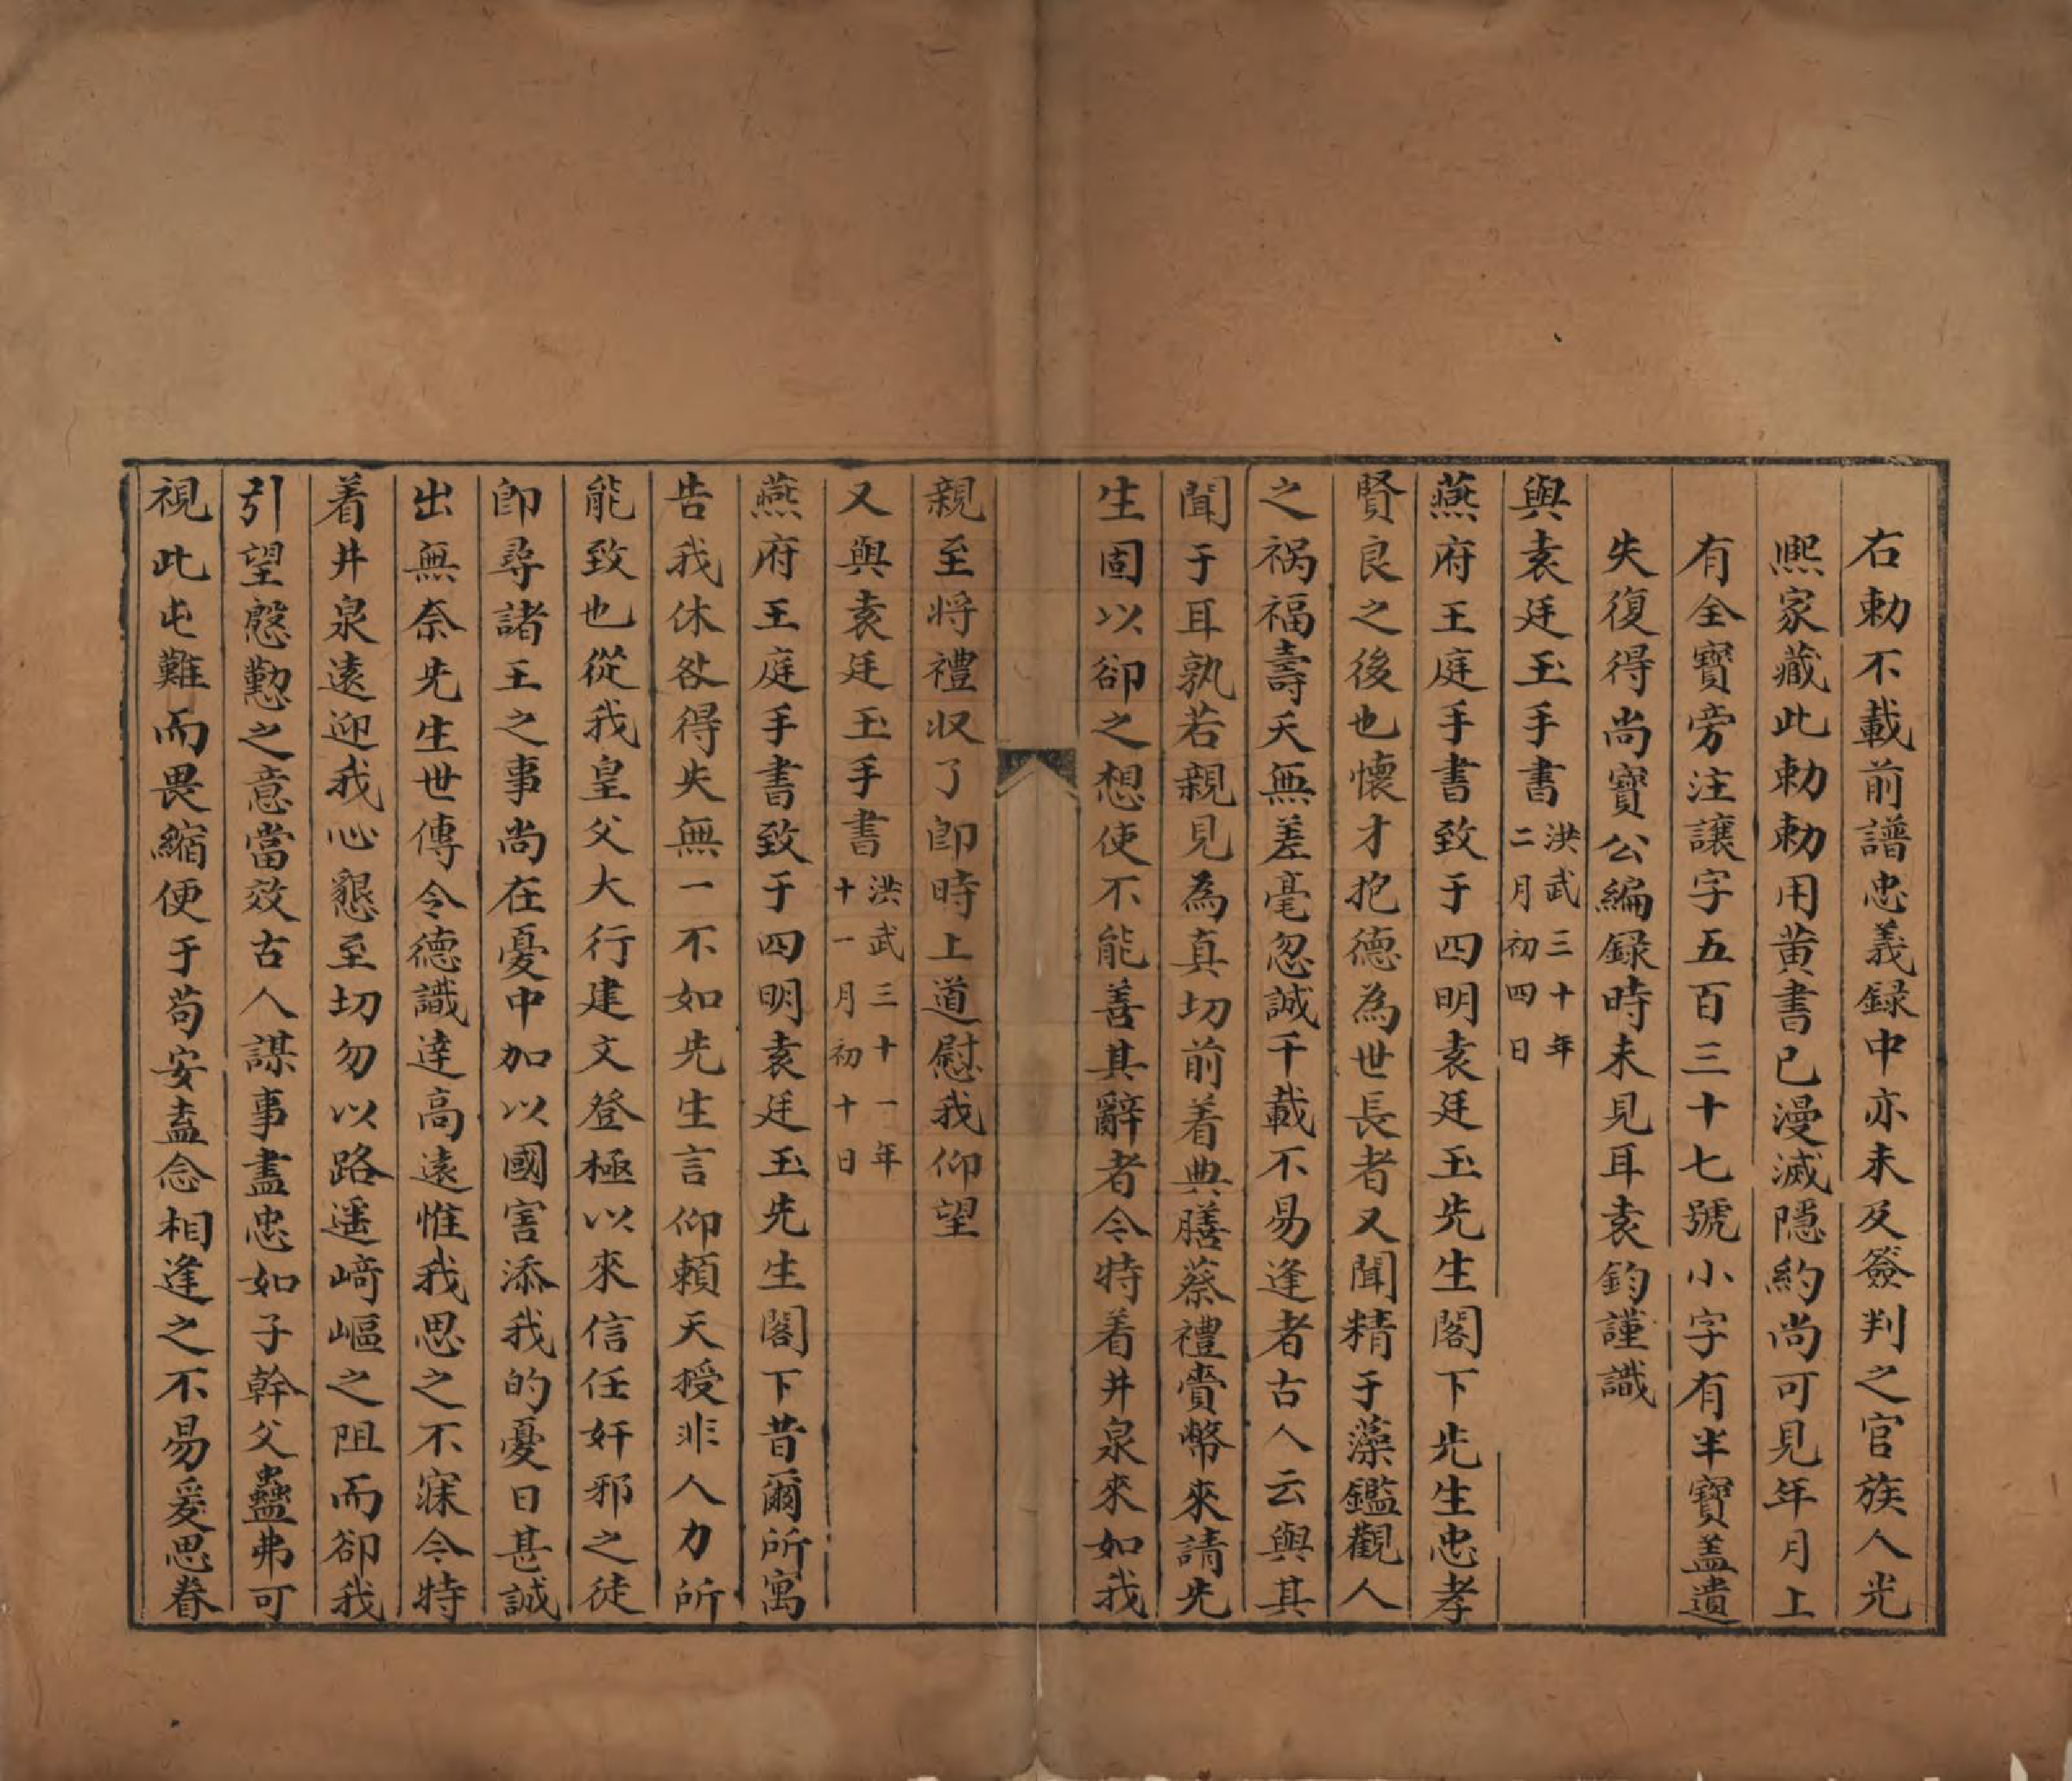 右勅不載前譜忠義録中亦未及簽判之官族人光
熈家藏此勅勅用黄書已漫滅隱約尚可見年月上
有全寶旁注讓字五百三十七號小字有半寶盖遺
失復得尚寶公編録時未見耳袁鈞謹識
與袁廷玉手書洪武三十年二月初四日
燕府王庭手書致于四明袁廷玉先生閣下先生忠孝
賢良之後也懷才抱德為世長者又聞精于藻鑑觀人
之禍福壽夭無差毫忽誠千載不易逢者古人云與其
聞于耳孰若親見為真切前着典膳蔡禮賫幣來請先
生固以卻之想使不能善其辭者令特着井泉來如我
親至将禮収了卽時上道慰我仰望
又與袁廷玉手書洪武三十一年十一月初十日
燕府王庭手書致于四明袁廷玉先生閣下昔爾所寓
告我休咎得失無一不如先生言仰頼天授非人力所
能致也從我皇父大行建文登極以來信任奸邪之徒
卽尋諸王之事尚在憂中加以國害添我的憂日甚誠
出無奈先生世傳令德識達高遠惟我思之不寐令特
着井泉遠迎我心懇至切勿以路遥﨑嶇之阻而卻我
引望慇懃之意當效古人謀事盡忠如子幹父蠱弗可
視此屯難而畏縮便于苟安盍念相逢之不易爰思眷